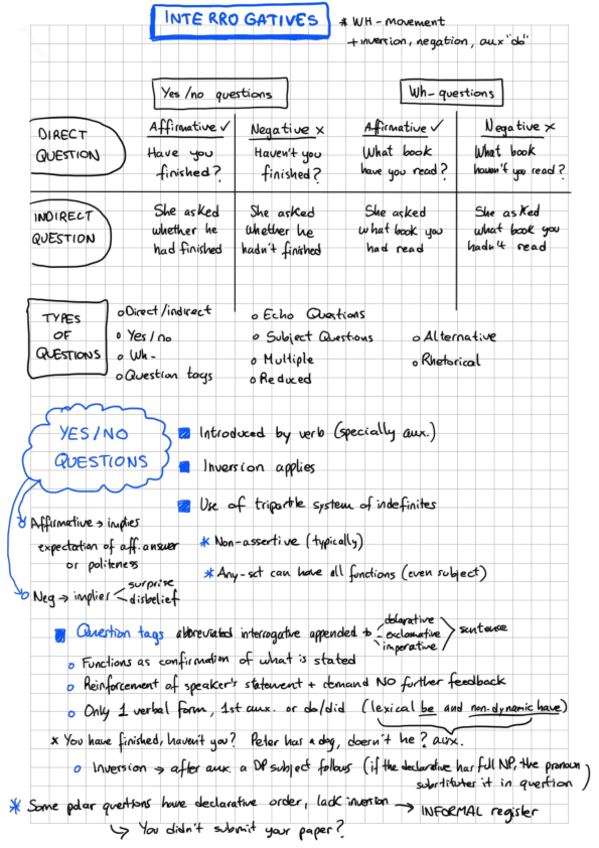 INTERROGATIVES
* WH-movement
+ inversion, negation, aux "do"
Yes/no questions
Wh-questions
Affirmative ✓ Negative x Affirmative ✓ Negative x
DIRECT QUESTION
Have you finished?
Haven't you finished?
What book have you read?
What book haven't you read?
INDIRECT QUESTION
She asked whether he had finished
She asked whether he hadn't finished
She asked what book you had read
She asked what book you hadn't read
TYPES OF QUESTIONS
Direct/indirect
Yes/no
Wh-
Question tags
Echo Questions
Subject Questions
Multiple
Reduced
Alternative
Rhetorical
YES/NO QUESTIONS
Introduced by verb (specially aux.)
Inversion applies
Use of tripartite system of indefinites
* Non-assertive (typically)
* Any-set can have all functions (even subject)
Affirmative → implies
expectation of aff. answer
or politeness
Neg → implies surprise
disbelief
Question tags abbreviated interrogative appended to declarative
exclamative
imperative
sentence
Functions as confirmation of what is stated
Reinforcement of speaker's statement + demand NO further feedback
Only 1 verbal form, 1st aux. or do/did (lexical be and non-dynamic have)
* You have finished, haven't you? Peter has a dog, doesn't he? aux.
Inversion → after aux. a DP subject follows (if the declarative has full NP, the pronoun
substitutes it in question)
* Some polar questions have declarative order, lack inversion → INFORMAL register
↳ You didn't submit your paper?